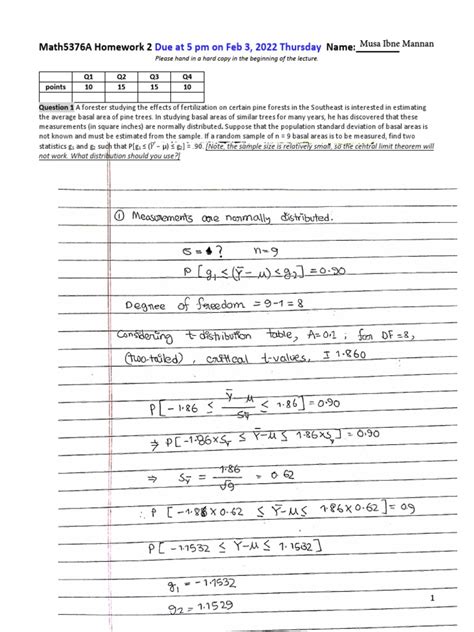 Math5376A Homework 2 Due at 5 pm on Feb 3, 2022 Thursday Name: Musa Ibne Mannan
Please hand in a hard copy in the beginning of the lecture.
Q1 Q2 Q3 Q4
points 10 15 15 10
Question 1 A forester studying the effects of fertilization on certain pine forests in the Southeast is interested in estimating
the average basal area of pine trees. In studying basal areas of similar trees for many years, he has discovered that these
measurements (in square inches) are normally distributed. Suppose that the population standard deviation of basal areas is
not known and must be estimated from the sample. If a random sample of n = 9 basal areas is to be measured, find two
statistics g₁ and g₂ such that P[g₁ ≤ (Ȳ − μ) ≤ g₂] = .90. [Note, the sample size is relatively small, so the central limit theorem will
not work. What distribution should you use?]
① Measurements are normally distributed.
σ = ? n=9
P [g₁ ≤ (Ȳ − μ) ≤ g₂] = 0.90
Degree of freedom = 9-1 = 8
Considering t-distribution table, A=0.1 ; for DF=8,
(two-tailed), critical t-values, I 1.860
P[-1.86 ≤ Ȳ-μ / Sȳ ≤ 1.86] = 0.90
⇒ P[-1.86×Sȳ ≤ Ȳ-μ ≤ 1.86×Sȳ] = 0.90
⇒ Sȳ = 1.86 / √9 = 0.62
∴ P [-1.86×0.62 ≤ Ȳ-μ ≤ 1.86×0.62] = 0.9
P[-1.1532 ≤ Ȳ-μ ≤ 1.1532]
g₁ = -1.1532
g₂ = 1.1529
1